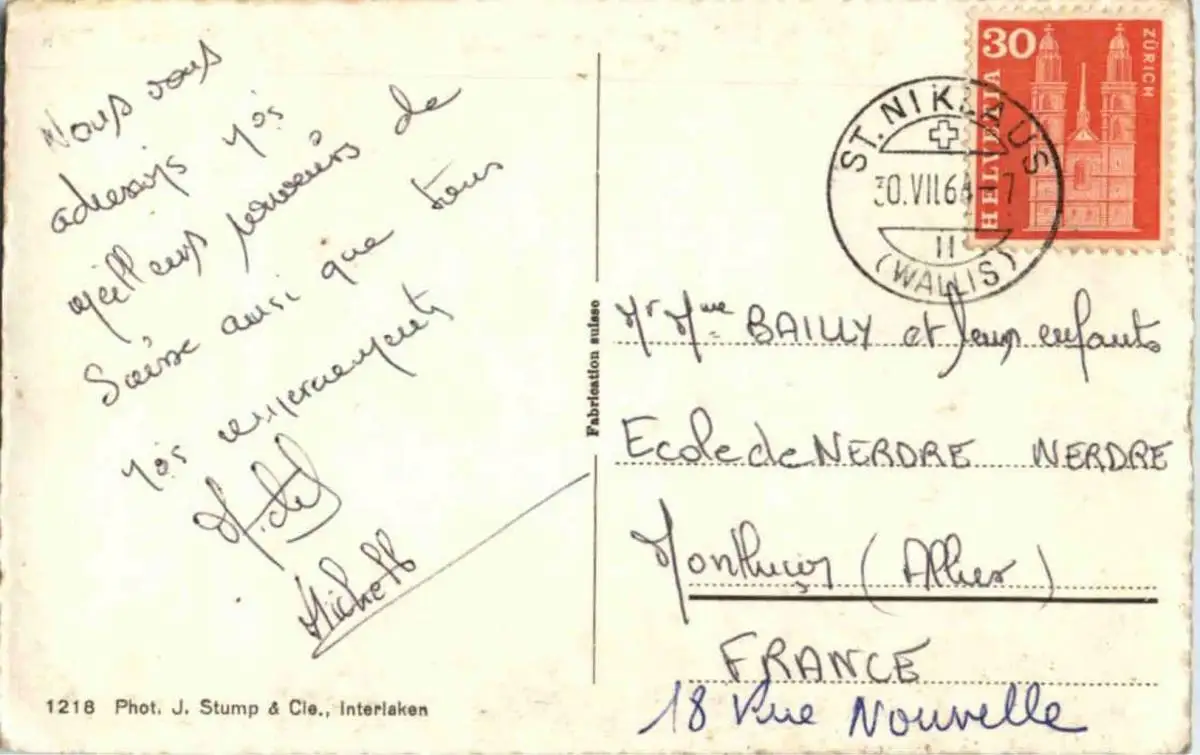 Nous vous
adressons nos
meilleurs souvenirs de
Suisse ainsi que tous
nos remerciements
Michel
Michell
1218 Phot. J. Stump & Cie., Interlaken
Fabrication suisse
30
HELVETIA
ZÜRICH
ST. NIKLAUS
30.VII.64-7
II
(WALLIS)
Mr Mme BAILLY et leurs enfants
Ecole de NERDRE NERDRE
Montluçon (Allier)
FRANCE
18 Rue Nouvelle